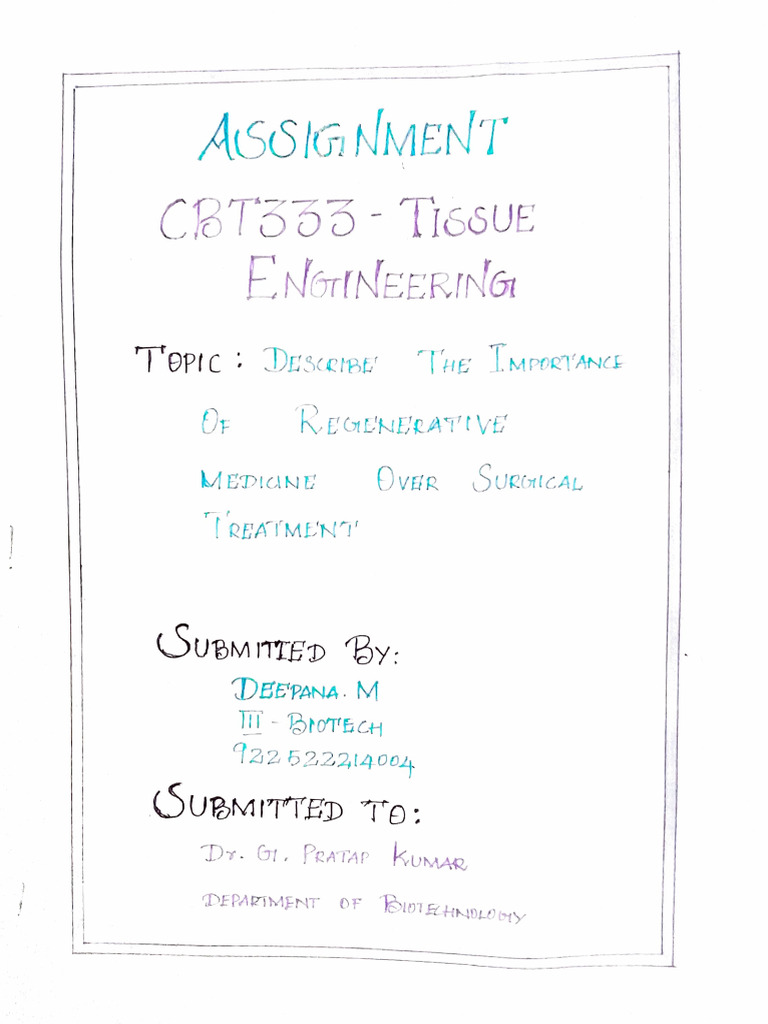 ASSIGNMENT
CBT333 - TISSUE
ENGINEERING
TOPIC : DESCRIBE THE IMPORTANCE
OF REGENERATIVE
MEDICINE OVER SURGICAL
TREATMENT
SUBMITTED BY:
DEEPANA. M
III - BIOTECH
922522214004
SUBMITTED TO:
Dr. G. PRATAP KUMAR
DEPARTMENT OF BIOTECHNOLOGY